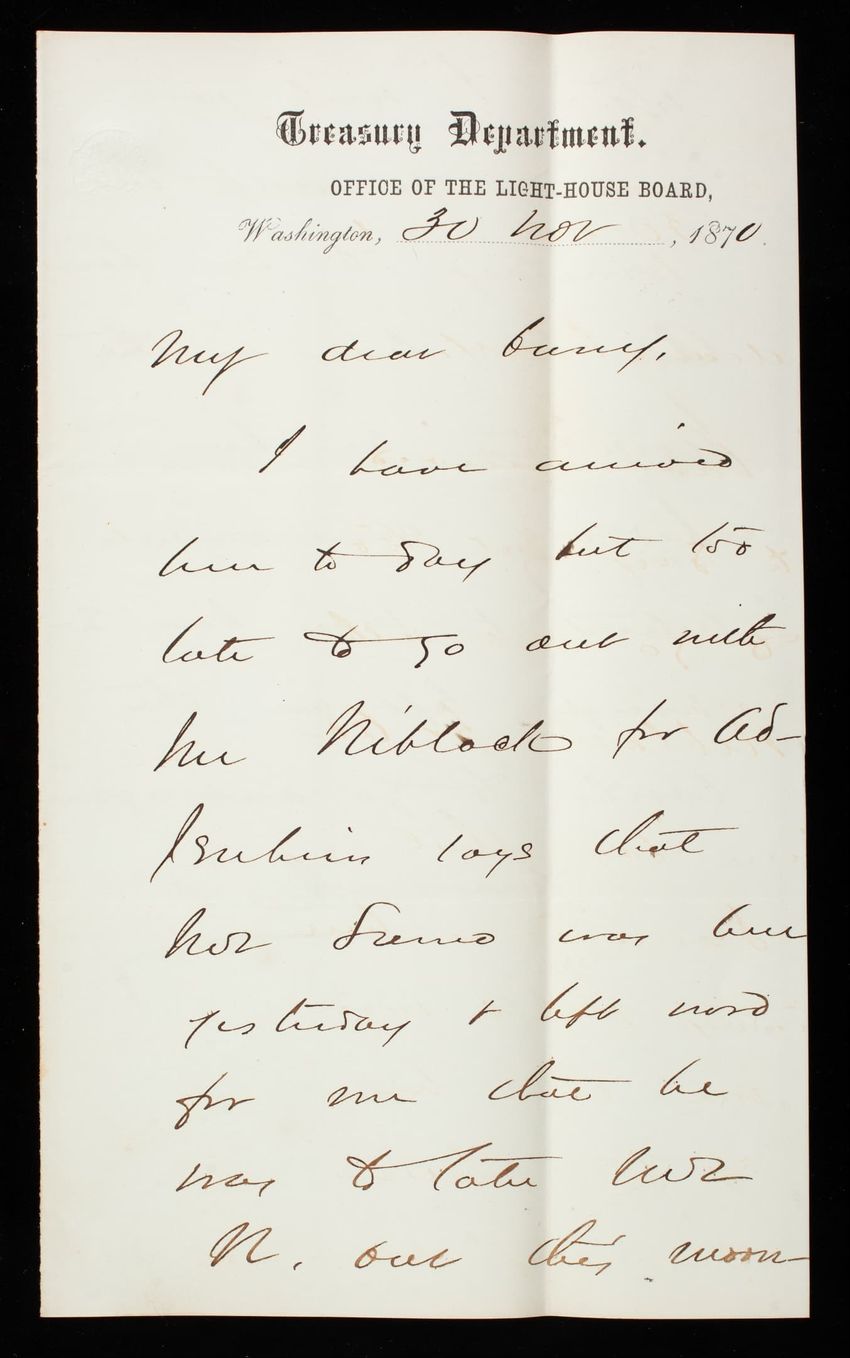 Treasury Department.
OFFICE OF THE LIGHT-HOUSE BOARD,
Washington, 30 Nov, 1870.
My dear Casey,
I have arrived
here to day but too
late to go out with
Mr Niblack for Ad-
Jenkins says that
Mr was here
yesterday & left word
for me that he
was to take Mr
N. out this morn-